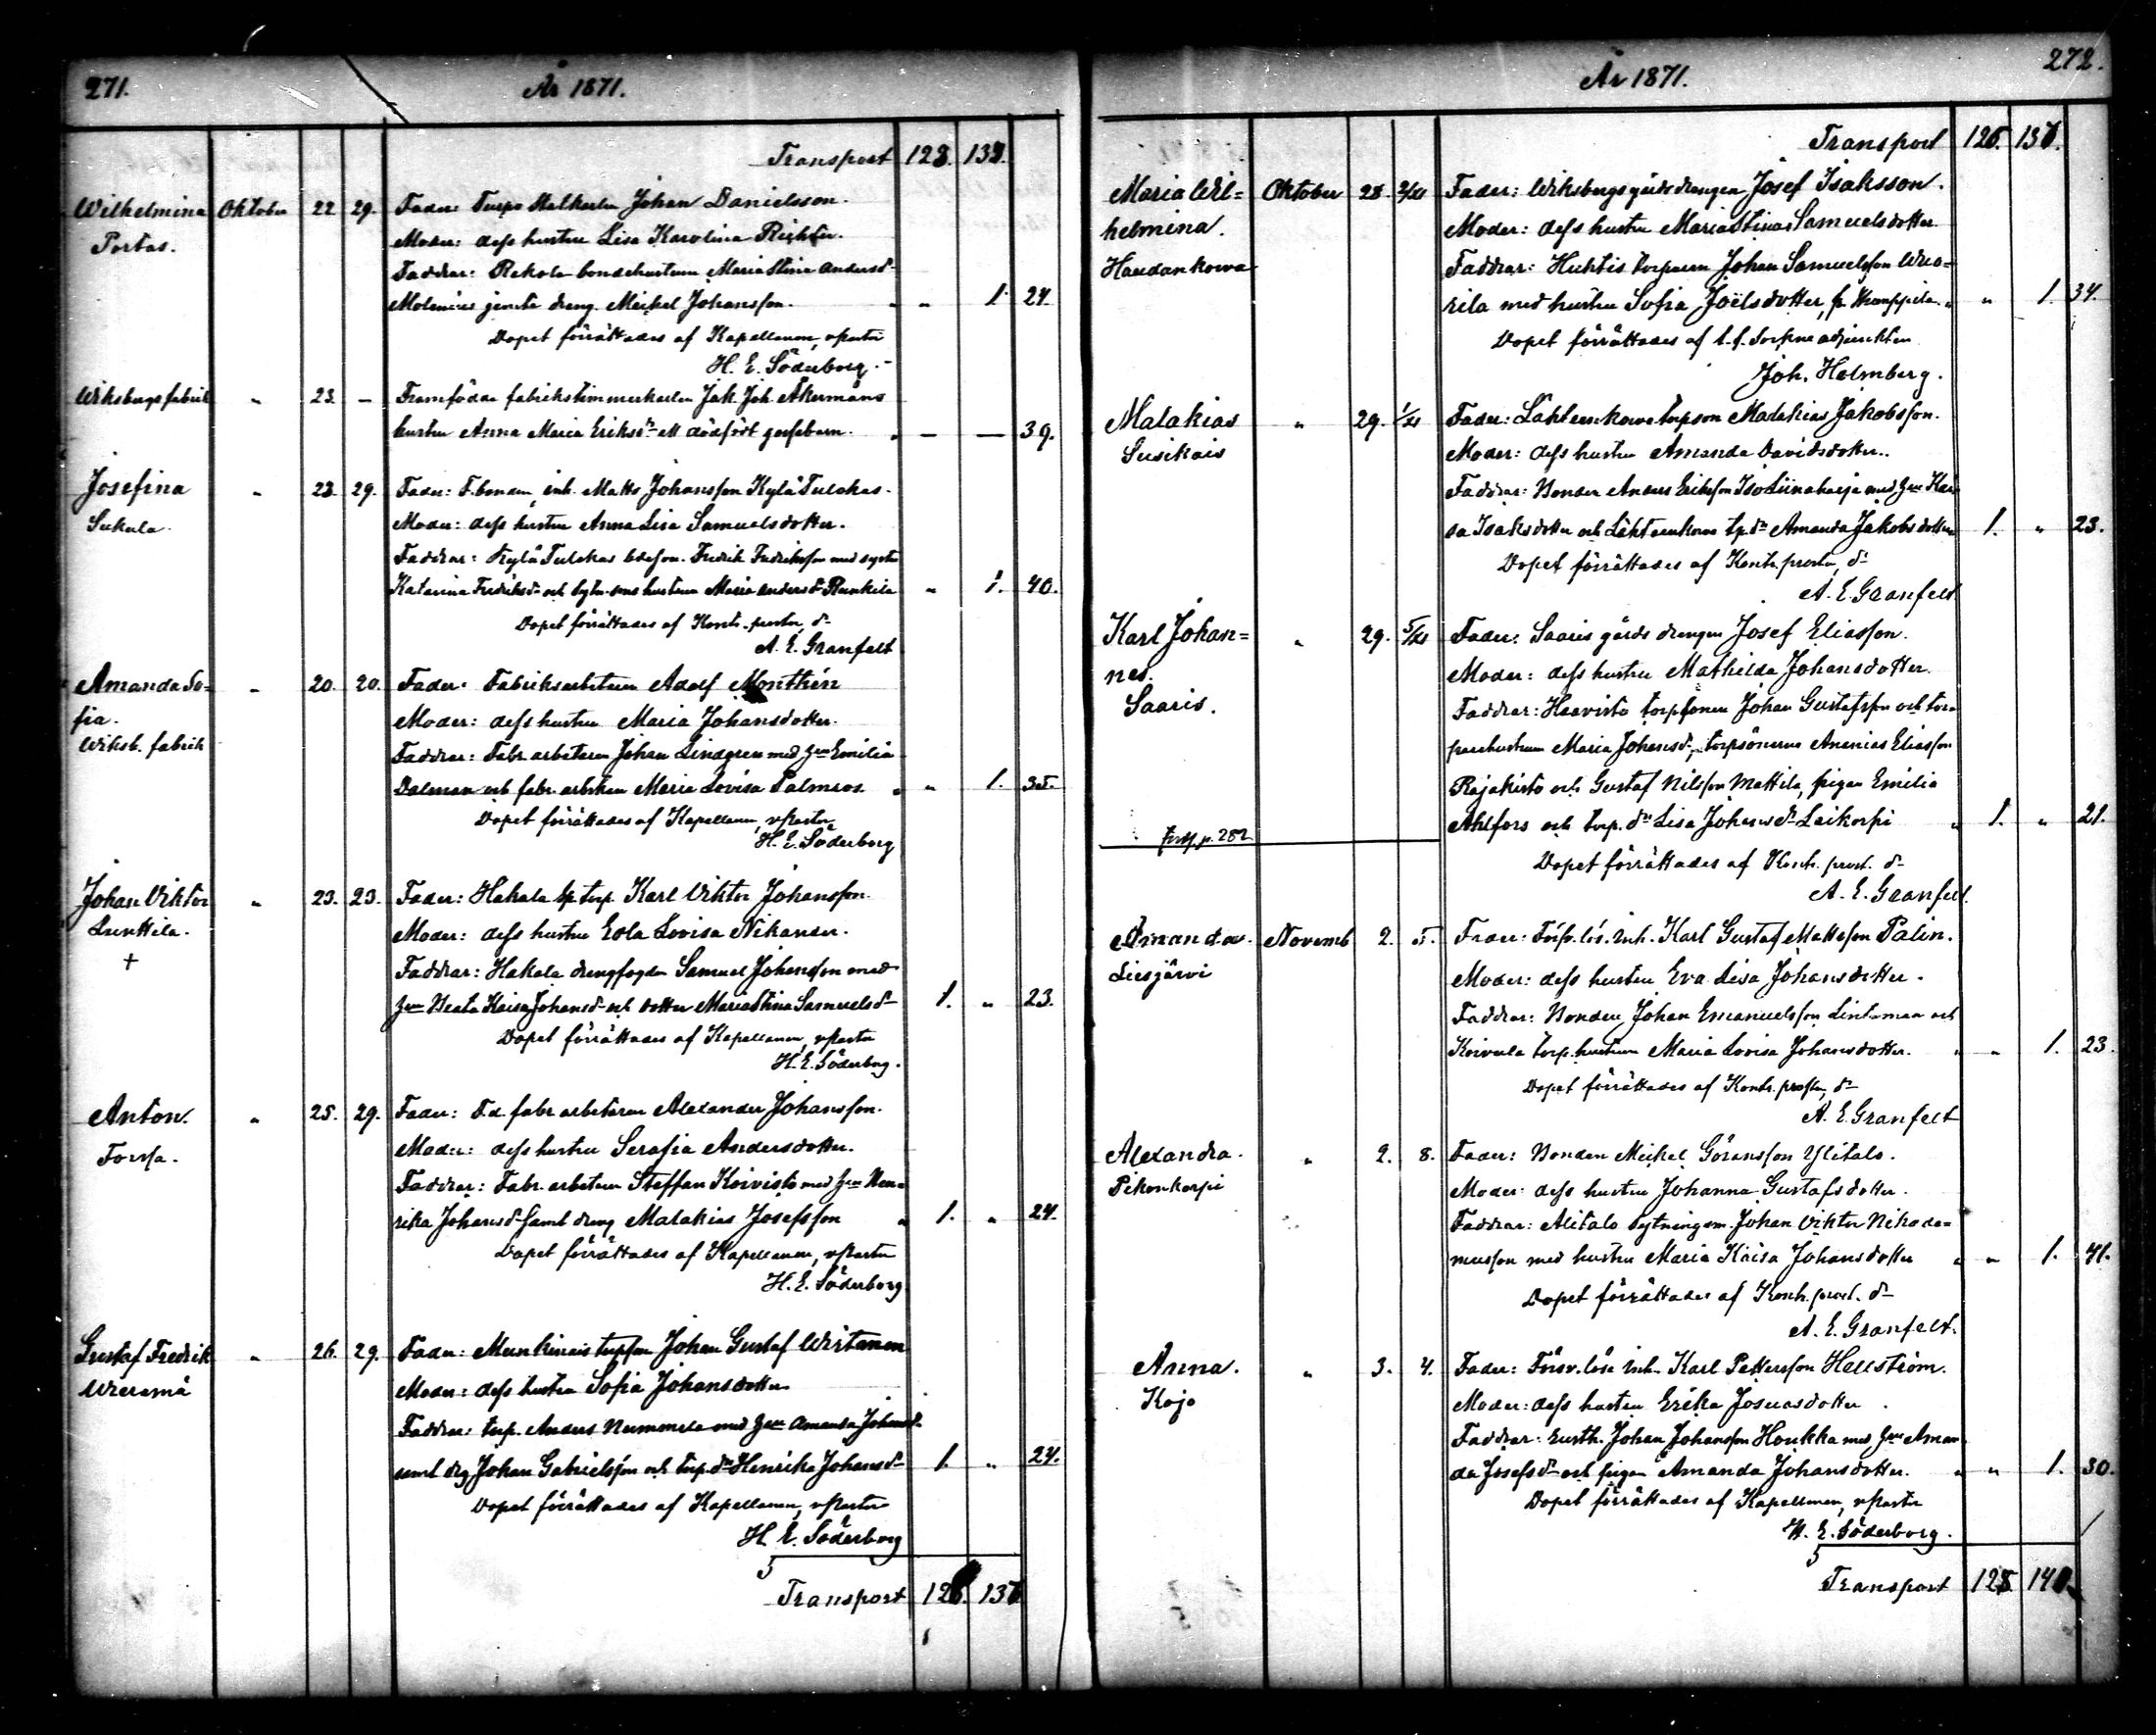 271. År 1871.
Transport 123. 133.
Wilhelmina Oktober 22 29. Fader: Turpo Johan Danielsson.
Portas. Moder: dess hustru Lisa Karolina Richter.
Faddrar: Rekola bondehustrun Maria Stina Andersd:
dreng. Meikel Johansson. " " 1. 24
Dopet förrättades af Kapellanen, vPastor
H. E. Söderborg.
Wiksbergs fabrik " 23. — Framfödde fabrikstimmerkarlen Jak. Joh. Åkermans
hustru Anna Maria Eriksdr ett dödfödt gossebarn. " — — 39.
Josefina " 23. 29. Fader: F. bonden, inh. Matts Johansson Kylä Tulokas.
Sukula. Moder: dess hustru Anna Lisa Samuelsdotter.
Faddrar: Kylä Tulokas bdeson. Fredrik Fredriksson med syster
Katarina Fredriksd: och hustrun Maria Andersd: Runkila " 1. 40.
Dopet förrättades af Kontr. prosten, dr
A. E. Granfelt
Amanda So- " 20. 20. Fader: Fabriksarbetaren Adolf Monthén
fia. Moder: dess hustru Maria Johansdotter.
Wiksb. fabrik Faddrar: Fabr. arbetaren Johan Lindgren med hru Emilia
Dalman och fabr. arbetaren Maria Lovisa Palmros. " " 1. 35.
Dopet förrättades af Kapellanen, vPastor
H. E. Söderborg
Johan Viktor " 23. 23. Fader: Hakala torp. Karl Viktor Johansson.
Lunttila. Moder: dess hustru Eola Lovisa Nikander.
+ Faddrar: Hakala drengfogden Samuel Johansson med
hru Beata Kaisa Johansd: och dotter Maria Stina Samuelsd: 1. " 23.
Dopet förrättades af Kapellanen, vPastor
H. E. Söderborg.
Anton. " 25. 29. Fader: F.d. fabr. arbetaren Alexander Johansson.
Forssa. Moder: dess hustru Serafia Andersdotter.
Faddrar: Fabr. arbetaren Steffan Koivisto med hru Hen-
rika Johansd: samt dreng Malakias Josefsson " 1. " 24.
Dopet förrättades af Kapellanen, vPastor
H. E. Söderborg
Gustaf Fredrik " 26. 29. Fader: Munkinais torpson Johan Gustaf Wirtanen
Wieremä Moder: dess hustru Sofia Johansdotter
Faddrar: torp. Anders Nummela med hru Amanda Johansd:
samt drg Johan Gabrielsson och torp. dr Henrika Johansd: 1. " 24.
Dopet förrättades af Kapellanen, vPastor
H. E. Söderborg
Transport 126. 136
År 1871. 272.
Transport 126. 136.
Maria Wil= Oktober 28. 2/XI Fader: Wiksbergs gårds drengen Josef Isaksson.
helmina. Moder: dess hustru Maria Stina Samuelsdotter.
Haudankorva Faddrar: Huhtis torparen Johan Samuelsson Wuo-
rila med hustru Sofia Joëlsdotter, fr. " " 1. 34.
Dopet förrättades af t. f. Sockne adjunkten
Joh. Holmberg.
Malakias " 29. 1/XI Fader: Lähteenkorva torpson Malakias Jakobsson.
Susikais Moder: dess hustru Amanda Davidsdotter.
Faddrar: Bonden Anders Eriksson Iso Liinaharja med hru Kai-
sa Isaksdotter och Lähteenkorva tp. dr Amanda Jakobsdotter 1. " 23.
Dopet förrättades af Kontr. prosten, dr
A. E. Granfelt
Karl Johan= " 29. 5/XI Fader: Saaris gårds drengen Josef Eliasson.
nes. Moder: dess hustru Mathilda Johansdotter.
Saaris. Faddrar: Haavisto torpsonen Johan Gustafsson och tor-
parehustrun Maria Johansd:, torpsönerna Ananias Eliasson
Rajakisto och Gustaf Nilsson Mattila, pigan Emilia
Ahlfors och torp. dr Lisa Johansdr Laikorpi " 1. " 21.
forts. p. 282
Dopet förrättades af Kontr. prost. dr
A. E. Granfelt.
Amanda. Novemb 2. 5. Fader: Försv. lös. Inh. Karl Gustaf Mattsson Palin.
Liesjärvi Moder: dess hustru Eva Lisa Johansdotter.
Faddrar: Bonden Johan Emanuelsson Lintumaa och
Koivula torp. hustrun Maria Lovisa Johansdotter. " " 1. 23.
Dopet förrättades af Kontr. prosten, dr
A. E. Granfelt
Alexandra. " 2. 8. Fader: Bonden Meikel Göransson Ylitalo.
Pikonkorpi Moder: dess hustru Johanna Gustafsdotter.
Faddrar: Alitalo bytningsm. Johan Viktor Nikode=
musson med hustru Maria Kaisa Johansdotter " " 1. 41.
Dopet förrättades af Kontr. prost. dr
A. E. Granfelt.
Anna. " 3. 4. Fader: Försv. löse Inh. Karl Pettersson Hellström.
Kojo Moder: dess hustru Erika Josuasdotter.
Faddrar: Johan Johansson Houkka med hru Aman
da Josefsd: och pigan Amanda Johansdotter. " " 1. 30.
Dopet förrättades af Kapellanen, vPastor
H. E. Söderborg.
Transport 128 140